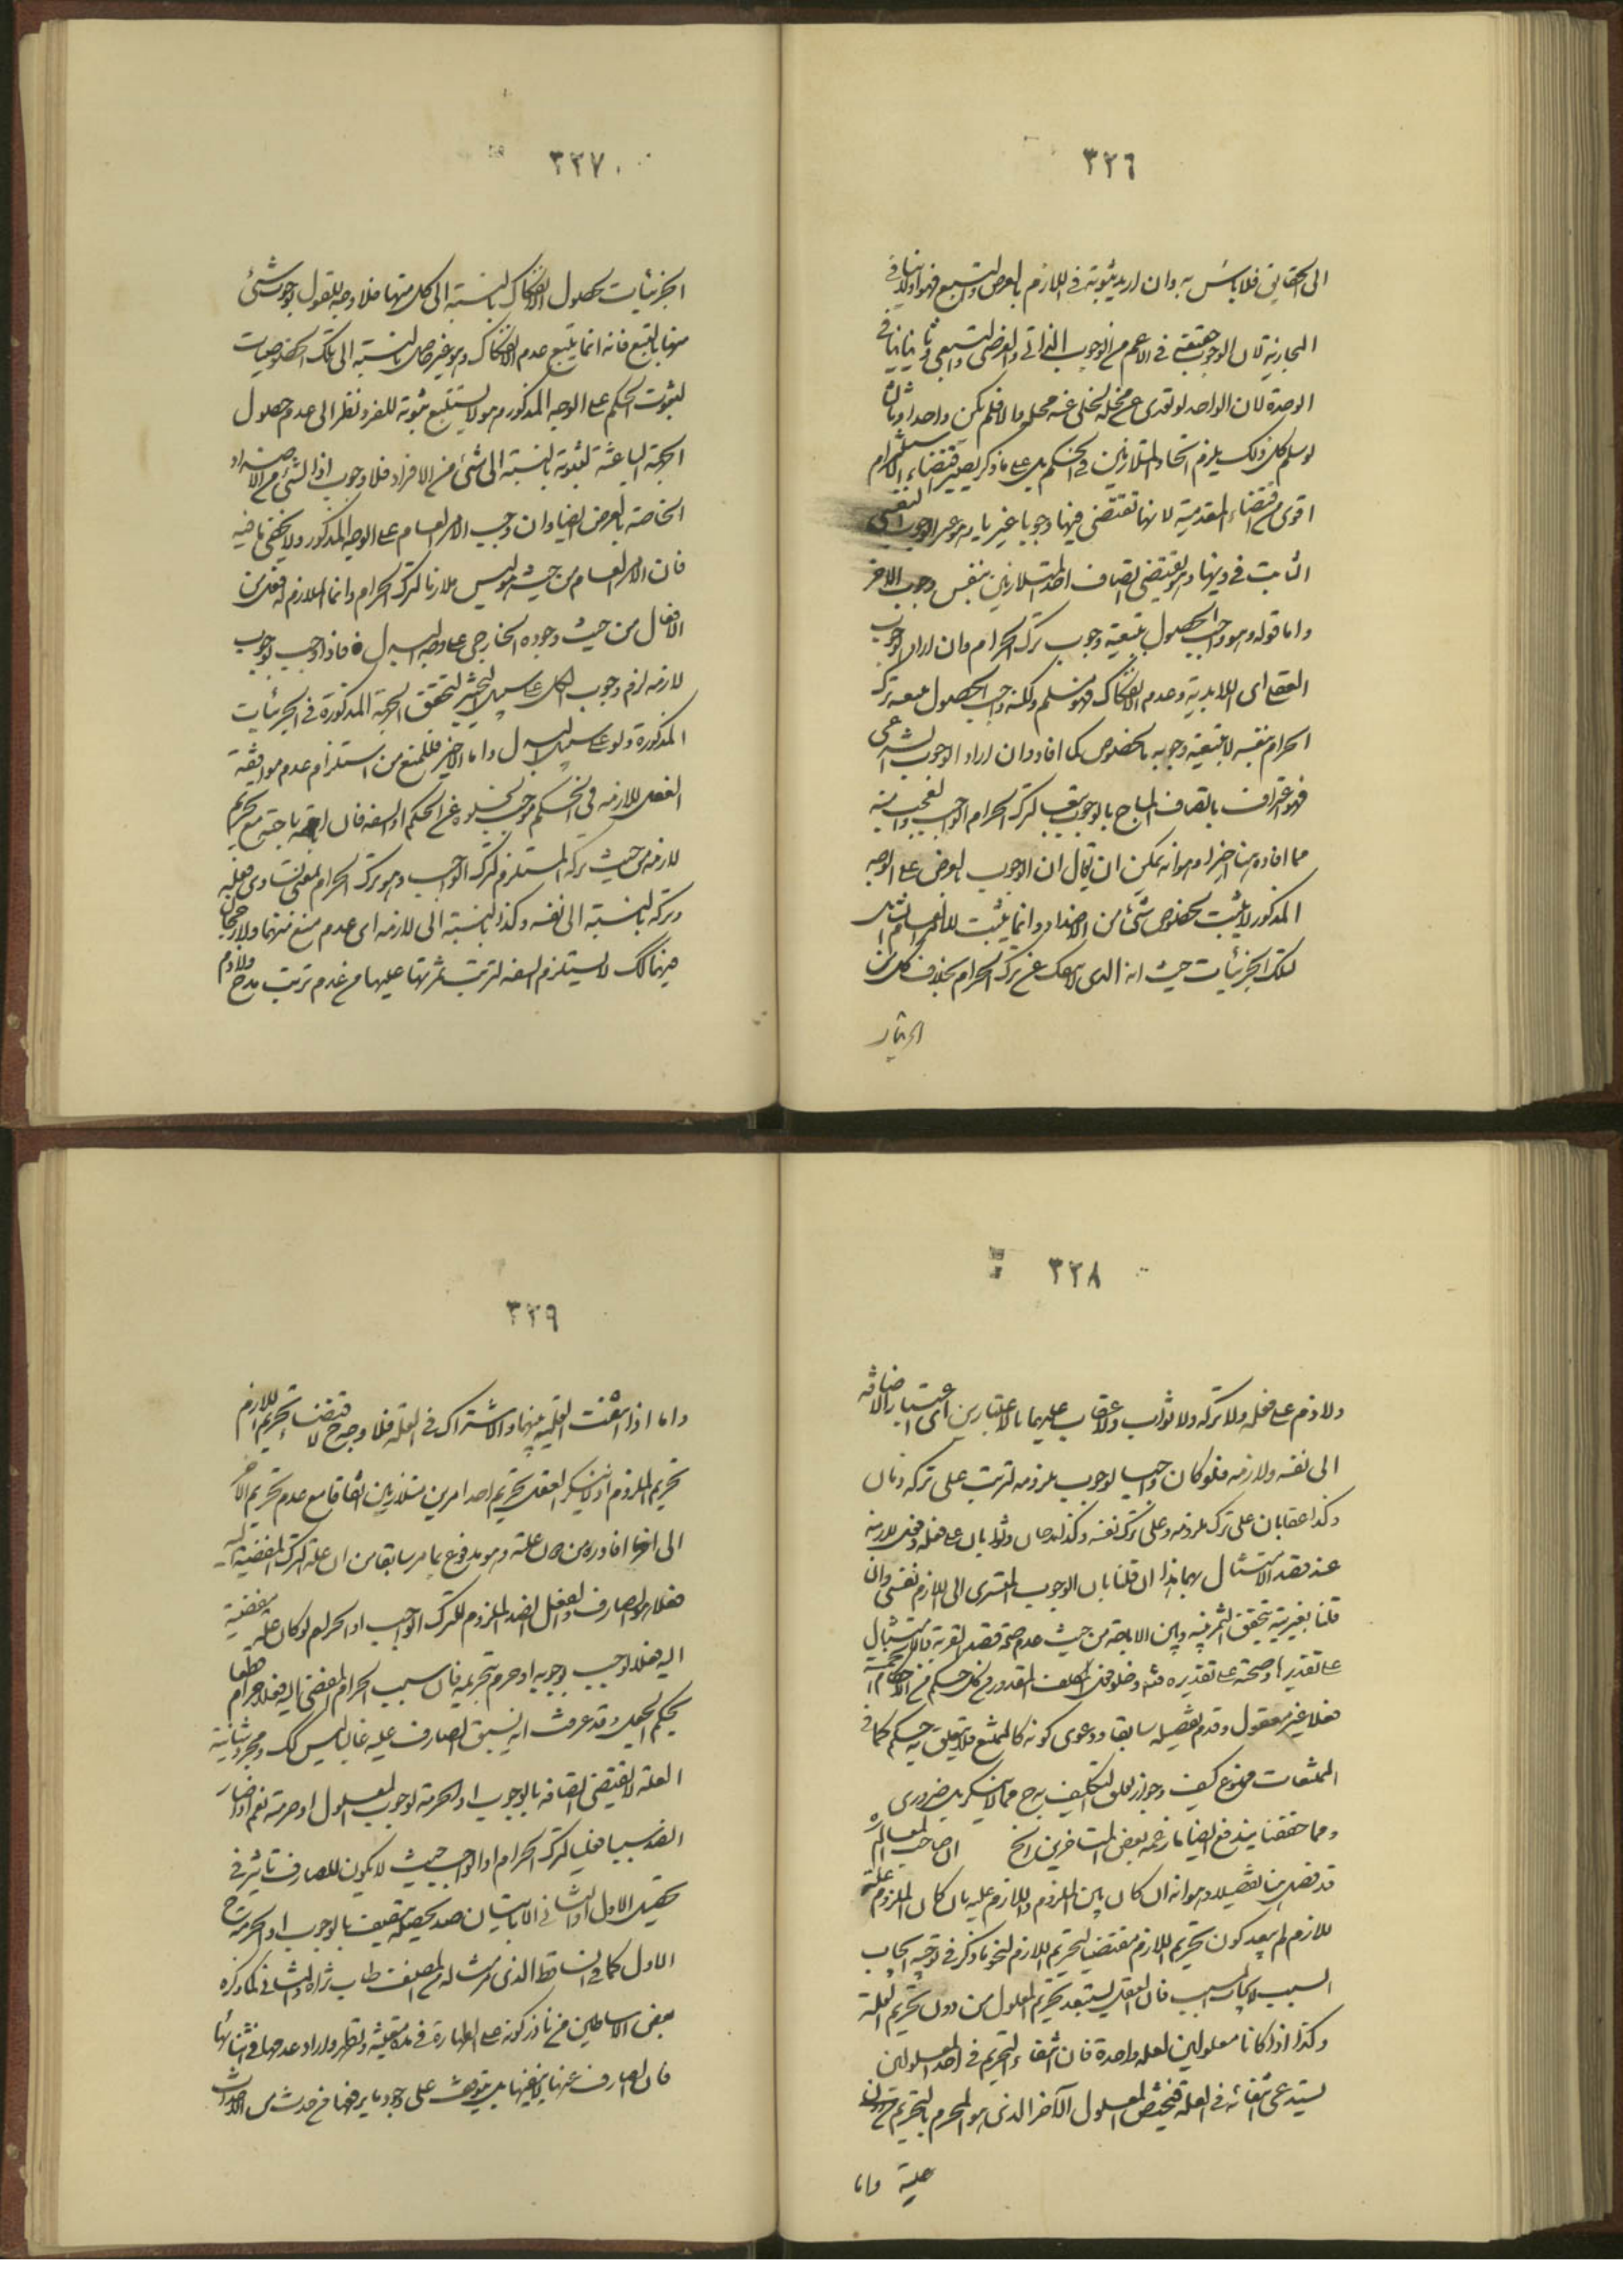 ٣٢٦
الى الحقايق فلا بأس به وان اريد ثبوته في اللازم بالعرض والتبع فهو اولا ينافي
المجازية لان الوجوب حقيقة في الاعم من الوجوب الذاتي والعرضي والتبعي وثانيا ينافي
الوحدة لان الواحد لو تعدى عن محله لخلى عنه محله والا فلم يكن واحدا وثالثا
لو سلم كل ذلك يلزم اتحاد المتلازمين في الحكم بل على ما ذكر يصير اقتضاء الاستلزام
اقوى من اقتضاء المقدمية لانها تقتضي فيها وجوبا غيريا
الثابت في ذيها وهو يقتضي اتصاف احد المتلازمين بنفس وجوب الاخر
واما قوله وهو واجب الحصول بتبعية وجوب ترك الحرام فان اراد الوجوب
العقلي اى اللابدية وعدم الانفكاك فهو مسلم ولكنه واجب الحصول تبعه ترك
الحرام بنفسه لا بتبعية وجوبه بالخصوص كما افاد وان اراد الوجوب الشرعي
فهو اعتراف باتصاف المباح بالوجوب لترك الحرام الواجب
مما افاده هنا اخيرا وهو انه يمكن ان يقال ان الوجوب بالعرض على الوجه
المذكور لا يثبت لخصوص شئ من الاضداد وانما يثبت للامر العام الشامل
لتلك الجزئيات حيث انه الذي لا ينفك عن ترك الحرام بخلاف كل من
الجزئيات
٣٢٧
الجزئيات لحصول الانفكاك بالنسبة الى كل منها فلا وجه للقول بوجوب شئ
منها بالتبع فانه انما يتبع عدم الانفكاك وهو غير حاصل بالنسبة الى تلك الخصوصيات
لثبوت الحكم على الوجه المذكور وهو لا يستتبع ثبوته للفرد نظرا الى عدم حصول
الجهة الباعثة لثبوته بالنسبة الى شئ من الافراد فلا وجوب اذا لشئ من الاضداد
الخاصة بالعرض ايضا وان وجب الامر العام على الوجه المذكور ولا يخفى ما فيه
فان الامر العام من حيث هو ليس ملازما لترك الحرام وانما الملازم له فعل من
الافعال من حيث وجوده الخارجي على وجه البدل فاذا وجب لوجوب
لازمه لزم وجوب الكل على سبيل التخيير لتحقق الجهة المذكورة في الجزئيات
المذكورة ولو على سبيل البدل واما الاخير فللمنع من استلزام عدم موافقة
الفعل للازمه في الحكم موجب لخلوه عن الحكم او السفه فان اباحته مع تحريم
لازمه من حيث تركه المستلزم لترك الواجب وهو ترك الحرام بمعنى تساوي فعله
وتركه بالنسبة الى نفسه وكذا بالنسبة الى لازمه اى عدم منع منهما ولا رجحان
هنالك لا يستلزم السفه لترتب ثمرتها عليها من عدم ترتب مدح ولا ذم
٣٢٨
ولا ذم على فعله ولا تركه ولا ثواب ولا عقاب عليهما بالاعتبارين اى اعتبار الاضافة
الى نفسه ولازمه فلو كان واجبا لوجوب ملزومه لترتب على تركه ذمان
وكذا عقابان على ترك ملزومه وعلى ترك نفسه وكذا مدحان وثوابان على فعله وفعل ملازمه
عند قصد الامتثال بهما هذا ان قلنا بان الوجوب المتسرى الى اللازم نفسي وان
قلنا بغيريته يتحقق الثمر بينه وبين الاباحة من حيث عدم صحة قصد القربة بالامتثال
على تقديرها وصحته على تقديره فتأمل وخلو فعل المكلف المقدور من كل حكم من الاحكام الخمسة
فعلا غير معقول وقدم تفصيله سابقا ودعوى كونه كالممتنع فلا يتعلق به حكم كما في
الممتنعات ممنوع كيف وجواز تعلق التكليف به ح مما لا ينكر بل ضروري
ومما حققنا يندفع ايضا ما زعمه بعض المتأخرين الخ ان صاحب المعالم ره
قد فصل هنا تفصيلا وهو انه ان كان بين الملزوم واللازم علية بان كان الملزوم علة
للازم لم يبعد كون تحريم اللازم مقتضيا لتحريم اللازم لنحو ما ذكر في توجيه ايجاب
السبب لايجاب السبب فان العقل يستبعد تحريم المعلول من دون تحريم العلة
وكذا اذا كانا معلولين لعلة واحدة فان انتفاء التحريم في احد المعلولين
يستدعي انتفائه في العلة فيختص المعلول الآخر الذي هو المحرم بالتحريم من دون
علية واما
٣٢٩
واما اذا انتفت العلية بينهما والاشتراك في العلة فلا وجه ح لاقتضاء تحريم اللازم
تحريم الملزوم اذ لا ينكر العقل تحريم احد امرين متلازمين اتفاقا مع عدم تحريم الاخر
الى اخر ما افاده من علته وهو مدفوع بما مر سابقا من ان علة الترك المفضية اليه
فعلا هو الصارف والفعل الضد الملزوم للترك الواجب او الحرام لو كان علة مفضية
اليه فعلا لوجب بوجوبه او حرم بتحريمه فان سبب الحرام المفضي اليه فعلا حرام قطعا
بحكم العقل وقد عرفت انه لسبق الصارف عليه غالبا ليس كك ومجرد شانية
العلة لا يقتضي اتصافه بالوجوب او الحرمة لوجوب المعلول او حرمته نعم اذا صار
الضد سببا فعليا لترك الحرام او الواجب بحيث لا يكون للصارف تاثير في
تحقيق الاول او الثاني الا باتيان ضد يحصله يتصف بالوجوب او الحرمة ح
الاول كما في الساقط الذي مر مثاله من المصنف طاب ثراه والثاني كما ذكره
بعض الاساطين من نذر كونه على الطهارة في مدة معينة وتطهر واراد عدمها في اثنائها
فان الصارف عنها لا ينفيها بل يتوقف على وجود ما يرفعها من حدث من الاحداث